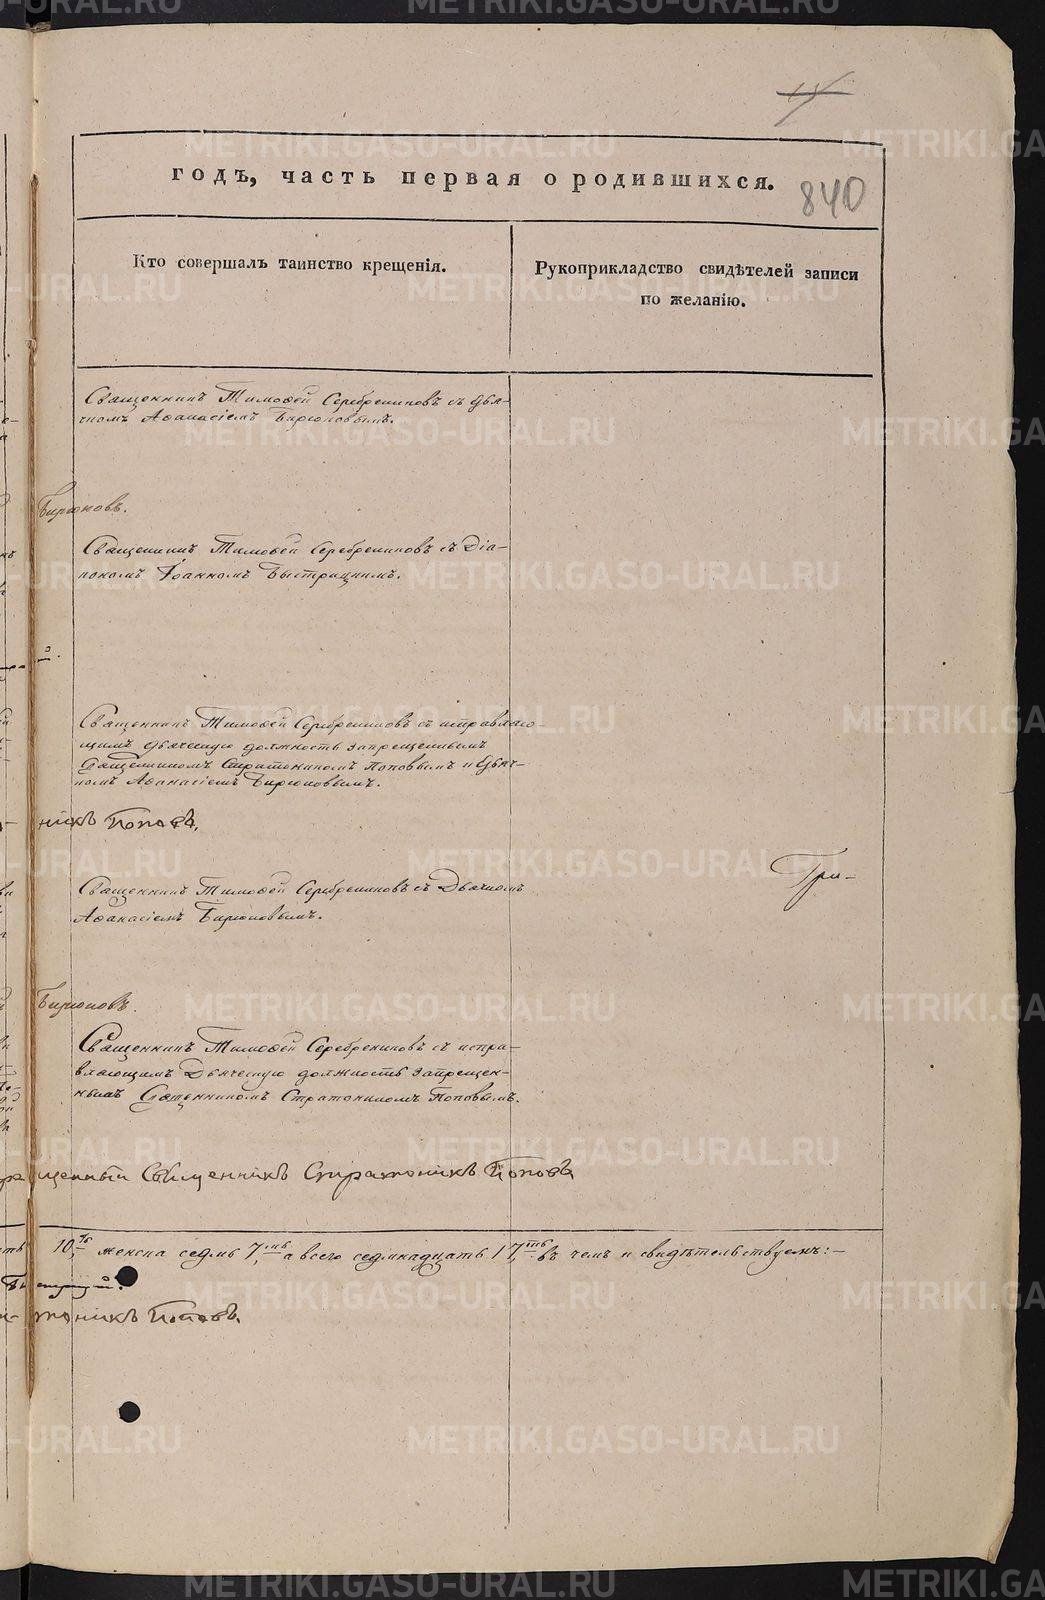 годъ, часть первая о родившихся.
840
Кто совершалъ таинство крещенія.
Рукоприкладство свидѣтелей записи
по желанію.
Священникъ Тимоѳей Серебрениковъ съ дья-
чкомъ Аѳанасіемъ Бирюковымъ.
Бирюковъ.
Священникъ Тимоѳей Серебрениковъ съ Діа-
кономъ Іоанномъ Быстрицкимъ.
Священникъ Тимоѳей Серебрениковъ съ исправляю-
щимъ дьяческую должность запрещеннымъ
Священникомъ Стратоникомъ Поповымъ и Дьяч-
комъ Аѳанасіемъ Бирюковымъ.
никъ Поповъ.
Священникъ Тимоѳей Серебрениковъ съ Дьячкомъ
Аѳанасіемъ Бирюковымъ.
Гри-
Бирюковъ.
Священникъ Тимоѳей Серебрениковъ съ испра-
вляющимъ Дьяческую должность запрещен-
нымъ Священникомъ Стратоникомъ Поповымъ.
щенный Священникъ Стратоникъ Поповъ
10,ть женска седмь 7,мь а всего седмнадцать 17,ть въ чемъ и свидѣтельствуемъ:-
тоникъ Поповъ.
METRIKI.GASO-URAL.RU